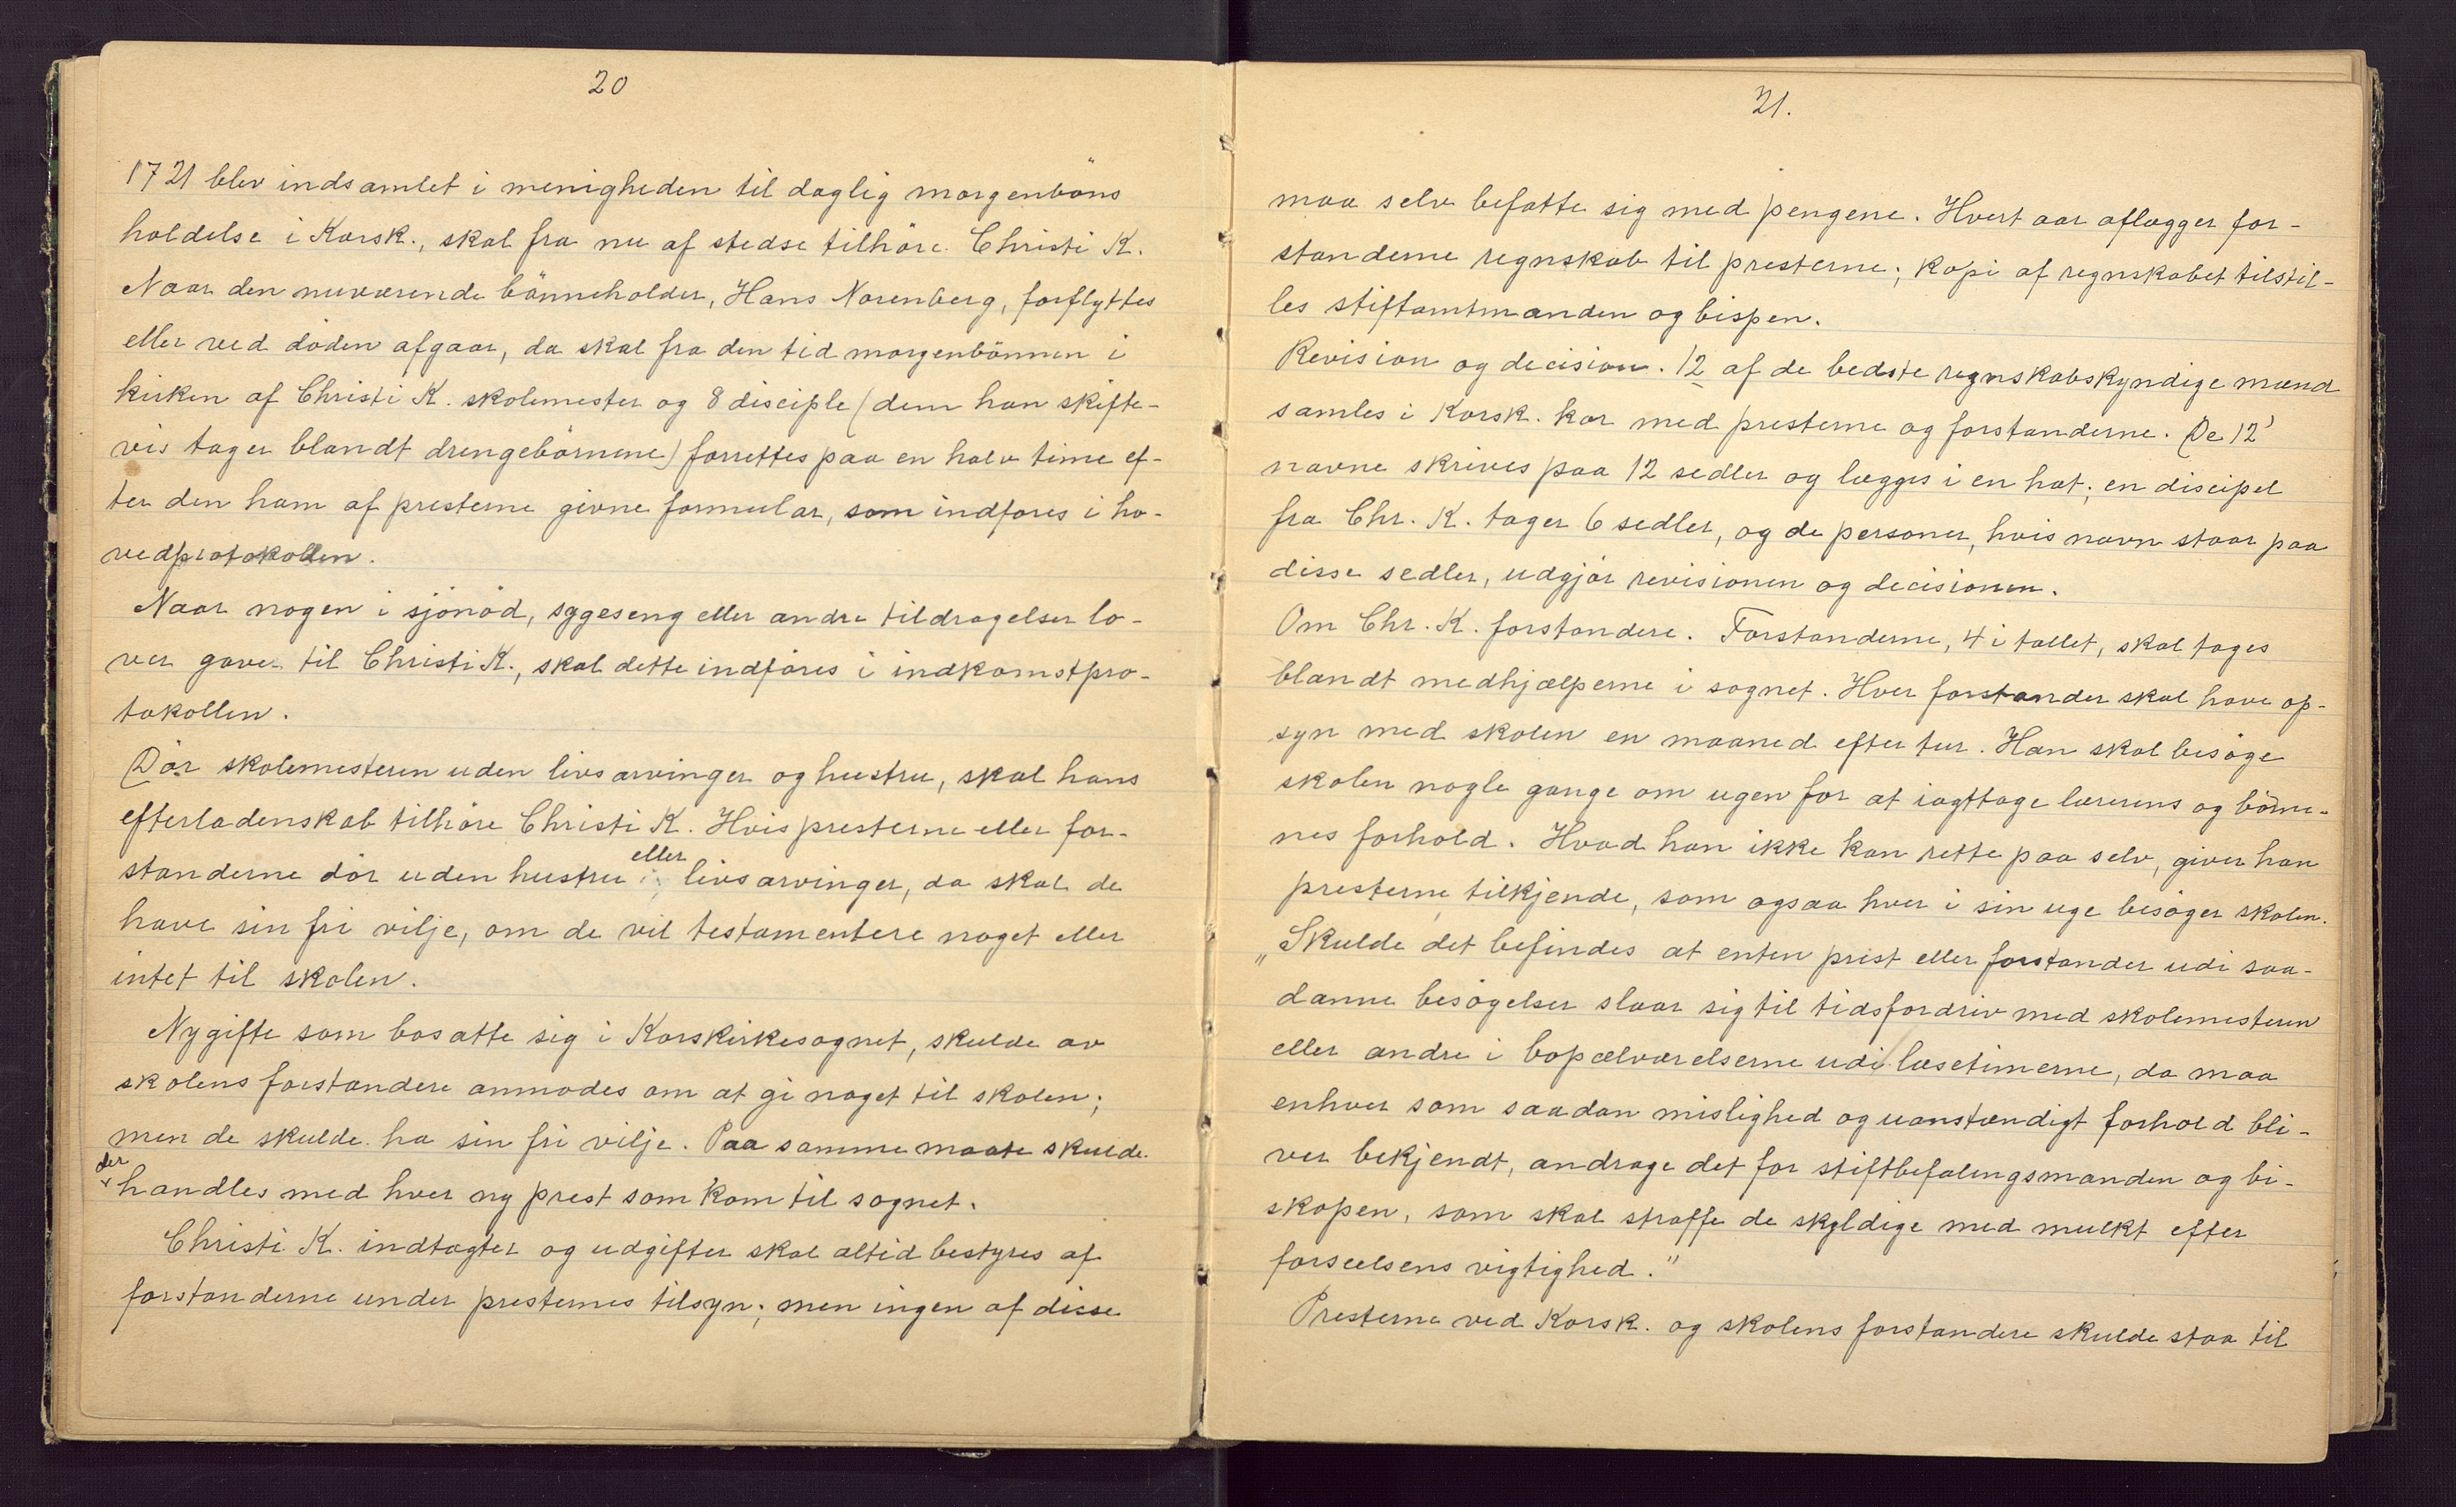 20
1721 blev indsamlet i menigheden til daglig morgenböns
holdelse i Korsk., skal fra nu af stedse tilhöre Christi K.
Naar den nuværende bönneholder, Hans Norenberg, forflyttes
eller ved döden afgaar, da skal fra den tid morgenbönnen i
kirken af Christi K. skolemester og 8 disciple (dem han skifte-
vis tager blandt drengebörnene) forrettes paa en halv time ef-
ter den ham af presterne givne formular, som indföres i ho-
vedprotokollen.
Naar nogen i sjönöd, sygeseng eller andre tildragelser lo-
ver gaver til Christi K., skal dette indföres i indkomstpro-
tokollen.
Dör skolemesteren uden livsarvinger og hustru, skal hans
efterladenskab tilhöre Christi K. Hvis presterne eller for-
standerne dör uden hustru eller livsarvinger, da skal de
have sin fri vilje, om de vil testamentere noget eller
intet til skolen.
Nygifte som bosatte sig i Korskirkesognet, skulde av
skolens forstandere anmodes om at gi noget til skolen;
men de skulde ha sin fri vilje. Paa samme maate skulde
der handles med hver ny prest som kom til sognet.
Christi K. indtægter og udgifter skal altid bestyres af
forstanderne under presternes tilsyn; men ingen af disse
21.
maa selv befatte sig med pengene. Hvert aar aflægger for-
standerne regnskab til presterne; kopi af regnskabet tilstil-
les stiftamtmanden og bispen.
Revision og decision. 12 af de bedste regnskabskyndige mænd
samles i Korsk. kor med presterne og forstanderne. De 12'
navne skrives paa 12 sedler og lægges i en hat; en discipel
fra Chr. K. tager 6 sedler, og de personer, hvis navn staar paa
disse sedler, udgjör revisionen og decisionen.
Om Chr. K. forstandere. Forstanderne, 4 i tallet, skal tages
blandt medhjælperne i sognet. Hver forstander skal have op-
syn med skolen en maaned efter tur. Han skal besöge
skolen nogle gange om ugen for at iagttage lærerens og börne-
nes forhold. Hvad han ikke kan rette paa selv, giver han
presterne tilkjende, som ogsaa hver i sin uge besöger skolen.
„Skulde det befindes at enten prest eller forstander udi saa-
danne besögelser slaar sig til tidsfordriv med skolemesteren
eller andre i bopælværelserne udi læsetimerne, da maa
enhver som saadan mislighed og uanstændigt forhold bli-
ver bekjendt, andrage det for stiftbefalingsmanden og bi-
skopen, som skal straffe de skyldige med mulkt efter
forseelsens vigtighed."
Presterne ved Korsk. og skolens forstandere skulde staa til